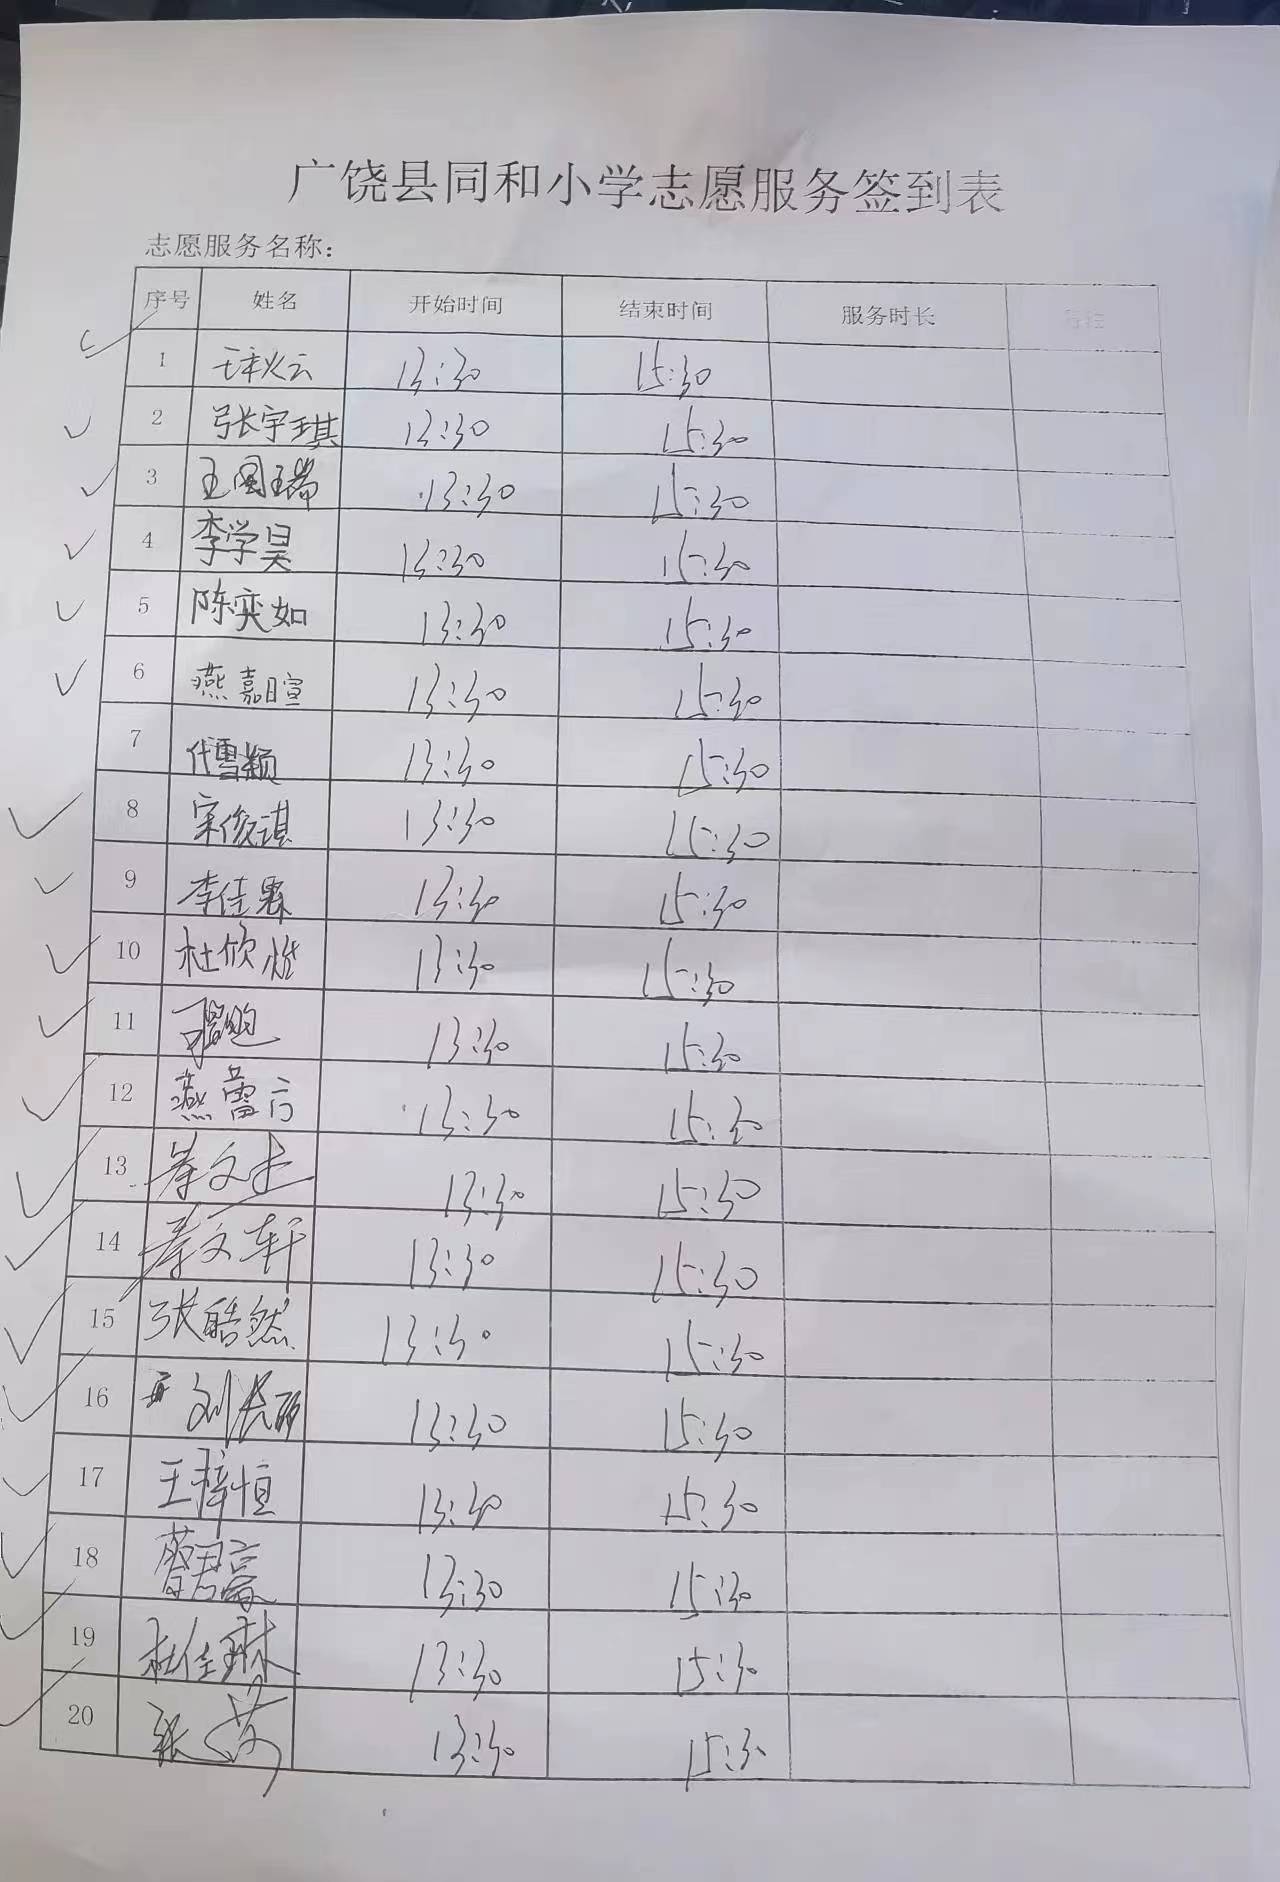 广饶县同和小学志愿服务签到表
志愿服务名称：
序号 姓名 开始时间 结束时间 服务时长 备注
1 王秋云 13:30 15:30
2 张宇琪 13:30 15:30
3 王国瑞 13:30 15:30
4 李学昊 13:30 15:30
5 陈奕如 13:30 15:30
6 燕嘉暄 13:30 15:30
7 代雪颖 13:30 15:30
8 宋俊淇 13:30 15:30
9 李佳霖 13:30 15:30
10 杜欣 13:30 15:30
11 13:30 15:30
12 燕 13:30 15:30
13 文 13:30 15:30
14 文轩 13:30 15:30
15 张皓然 13:30 15:30
16 刘 13:30 15:30
17 王梓恒 13:30 15:30
18 13:30 15:30
19 杜佳琳 13:30 15:30
20 张 13:30 15:30